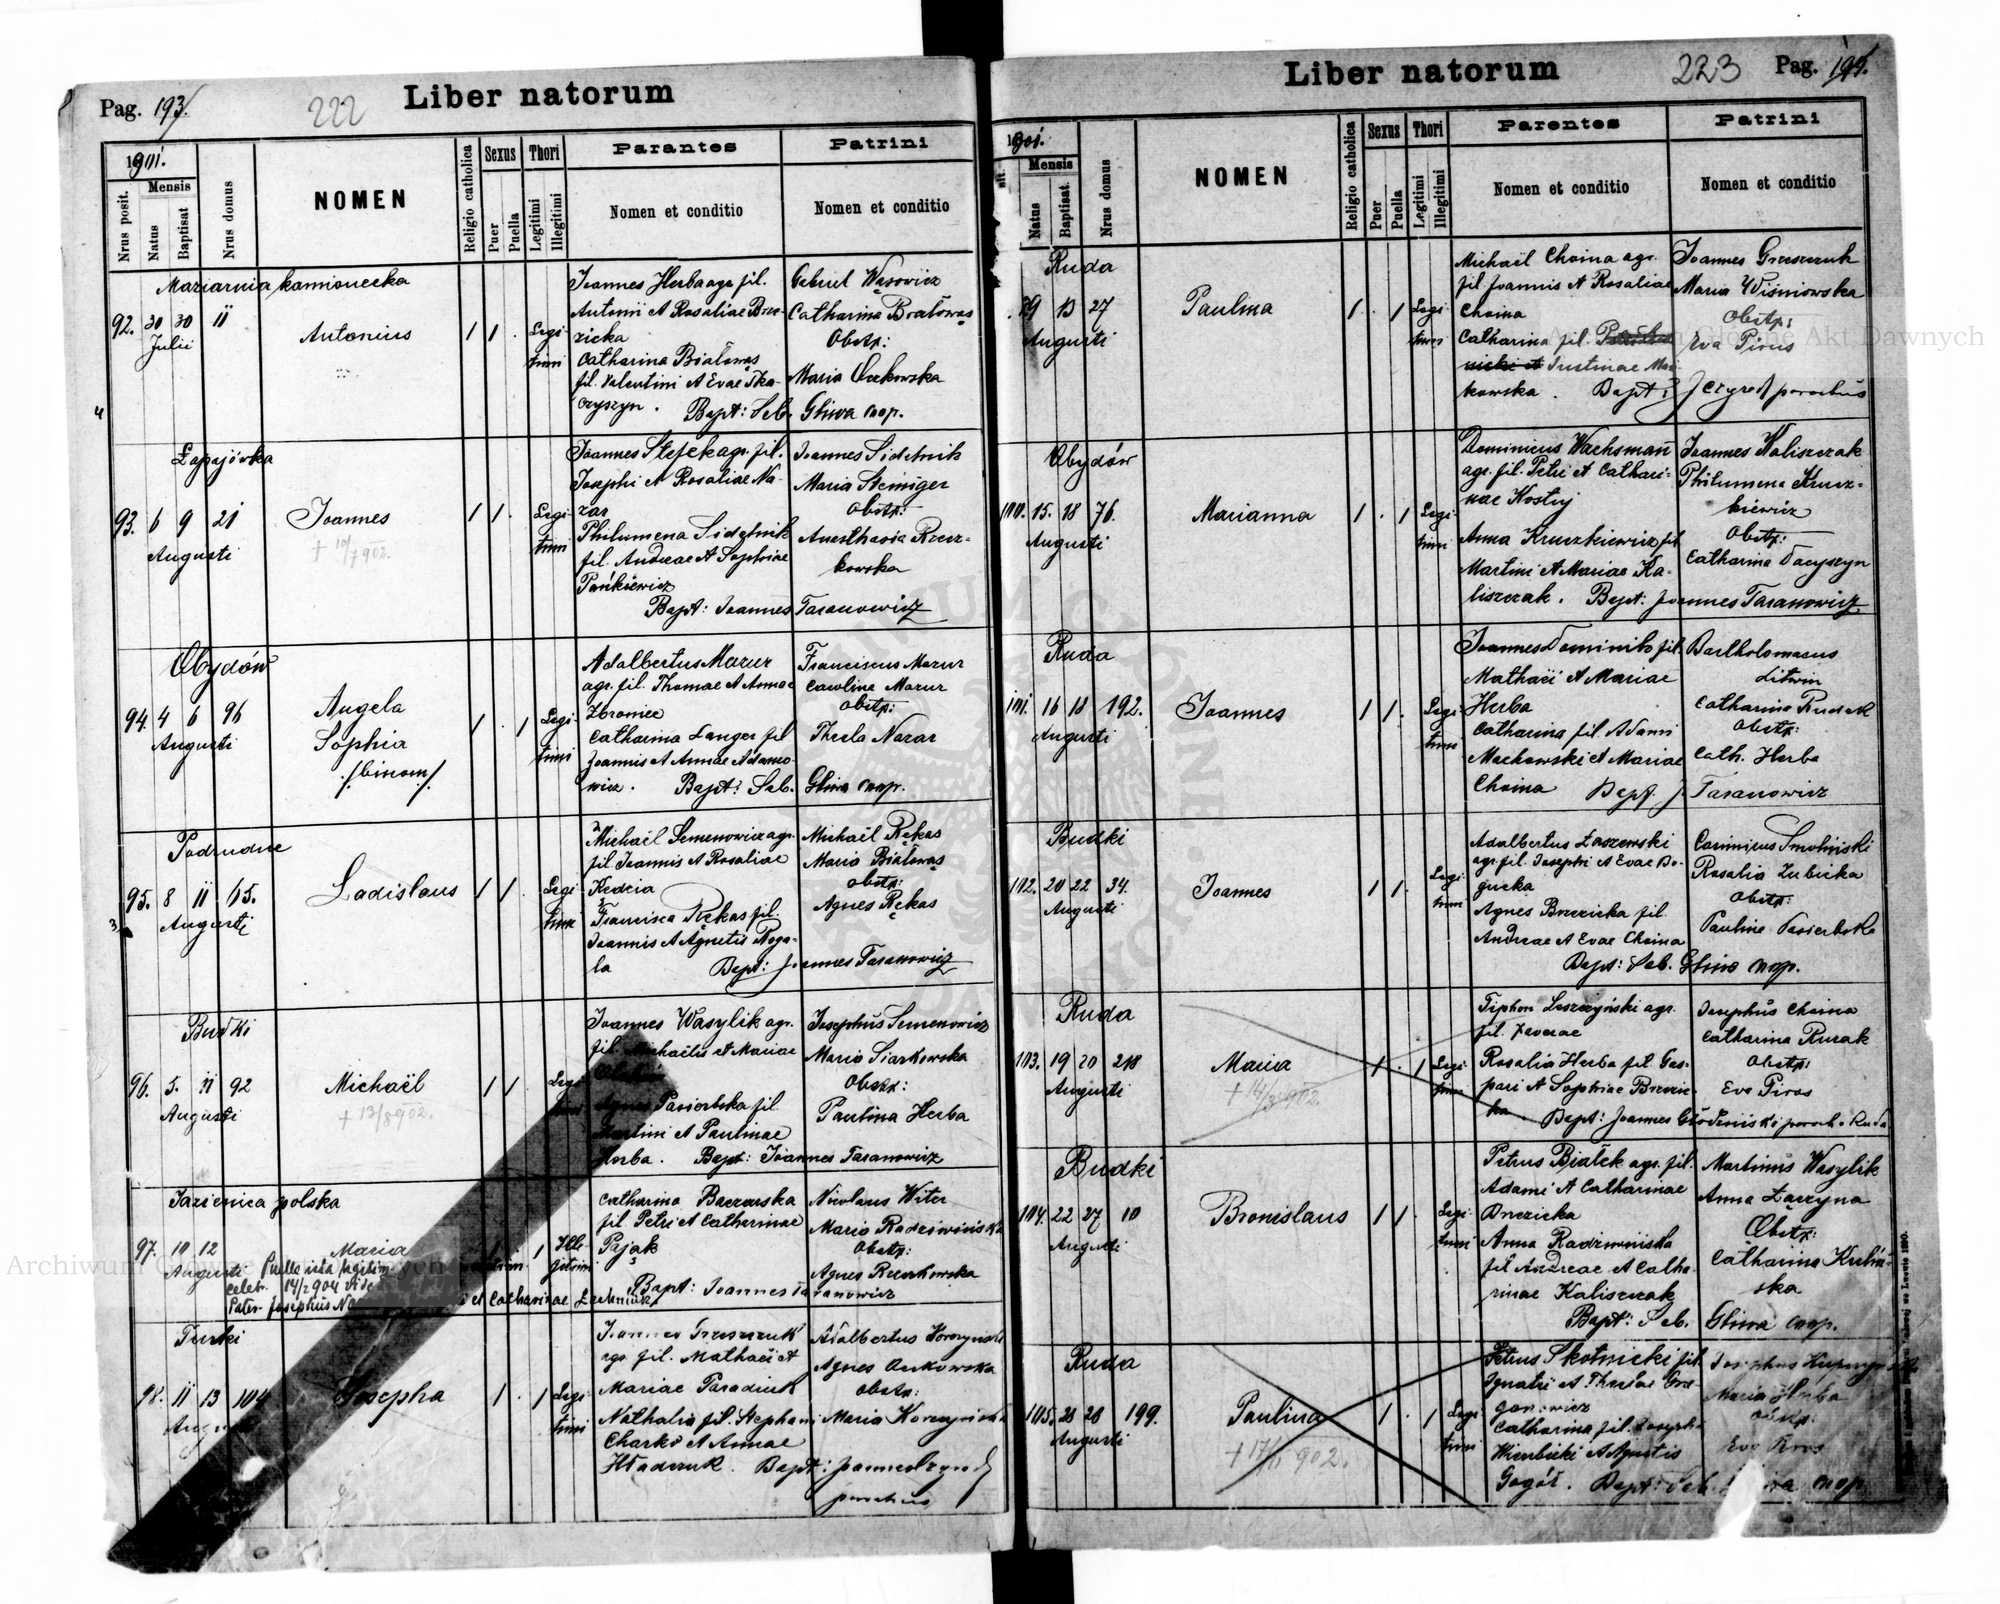 Pag. 193.
222
Liber natorum
1901.
Nrus posit.
Mensis
Natus
Baptisat
Nrus domus
NOMEN
Religio catholica
Sexus
Puer
Puella
Thori
Legitimi
Illegitimi
Parantes
Nomen et conditio
Patrini
Nomen et conditio
Mariarnia kamionecka
92. 30 30 11
Julii
Antonius
1 1 .
Legi-
timi
Joannes Herba agr. fil.
Antonii et Rosaliae Brze-
zicka
Catharina Białowąs
fil. Valentini et Evae Tka-
czyszyn. Bapt: Seb. Gliwa mp.
Gabriel Wąsowicz
Catharina Białowąs
Obstp:
Maria Ochowska
Łapajówka
93. 6 9 21
Augusti
Joannes
+ 10/7 902.
1 1 .
Legi-
timi
Joannes Stefek agr. fil.
Josephi et Rosaliae Na-
zar
Philumena Sidelnik
fil. Andreae et Sophiae
Pańkiewicz
Bapt: Joannes Taranowicz
Joannes Sidelnik
Maria Steiniger
Obstp:
Anasthasia Rucz-
kowska
Obydów
94. 4 6 96
Augusti
Angela
Sophia
/binom/
1 . 1
Legi-
timi
Adalbertus Mazur
agr. fil. Thomae et Annae
Zbroniec
Catharina Langer fil
Joannis et Annae Adamo-
wicz. Bapt: Seb. Gliwa mp.
Franciscus Mazur
Carolina Mazur
Obstp:
Thecla Nazar
Podrudne
95. 8 11 65.
Augusti
Ladislaus
1 1
Legi-
timi
Michaël Semenowicz agr.
fil Joannis et Rosaliae
Kędzia
Francisca Rękas fil.
Joannis et Agnetis Roga-
la Bapt: Joannes Taranowicz
Michaël Rękas
Maria Białowąs
Obstp:
Agnes Rękas
Budki
96. 5. 11 92
Augusti
Michaël
+ 13/8 902.
1 1
Legi-
timi
Joannes Wasylik agr.
fil. Michaëlis et Mariae
Agnes Pasierbska fil.
Martini et Paulinae
Herba. Bapt: Joannes Taranowicz
Josephus Semenowicz
Maria Siarkowska
Obstp:
Paulina Herba
Jazienica polska
97. 10 12
Augusti
Maria
Puella ista legitim.
celebr. 14/2 904 vide
Pater Josephus
et Catharinae
1
Ille-
gitimi
Catharina Baczarska
fil Petri et Catharinae
Pająk
Bapt: Joannes Taranowicz
Nicolaus Witer
Maria Radziwińska
Obstp:
Agnes Ruczkowska
Turki
98. 11 13 104
Augusti
Josepha
1 . 1
Legi-
timi
Joannes Grzeszczuk
agr. fil. Mathaei et
Mariae Paradiuk
Nathalia fil. Stephani
Charko et Annae
Hładczuk. Bapt:
parochus
Adalbertus
Agnes Ochowska
Obstp:
Maria
Liber natorum
223
Pag. 194.
1901.
Mensis
Natus
Baptisat
Nrus domus
NOMEN
Religio catholica
Sexus
Puer
Puella
Thori
Legitimi
Illegitimi
Parentes
Nomen et conditio
Patrini
Nomen et conditio
Ruda
13 27
Augusti
Paulina
1 1
Legi-
timi
Michaël Choina agr.
fil Joannis et Rosaliae
Choina
Catharina fil.
Justinae Ma-
kowska. Bapt: parochus
Joannes Grzeszczuk
Maria Wiśniowska
Obstp:
Eva Pirus
Obydów
100. 15. 18 76.
Augusti
Marianna
1 . 1
Legi-
timi
Dominicus Wachsman
agr. fil. Petri et Cathari-
nae Kostyj
Anna Kruczkiewicz fil
Martini et Mariae Ka-
liszczak. Bapt: Joannes Taranowicz
Joannes Kaliszczak
Philumena Krucz-
kiewicz
Obstp:
Catharina Daczyszyn
Ruda
101. 16 18 192.
Augusti
Joannes
1 1 .
Legi-
timi
Joannes Dominik fil
Mathaei et Mariae
Herba
Catharina fil Adami
Machowski et Mariae
Choina Bapt. J. Taranowicz
Bartholomaeus
Litwin
Catharina Rudak
Obstp:
Cath. Herba
Budki
102. 20 22 34.
Augusti
Joannes
1 1 .
Legi-
timi
Adalbertus Łaszewski
agr fil. Josephi et Evae Bo-
gucka
Agnes Brzezicka fil.
Andreae et Evae Choina
Bapt: Seb. Gliwa mp.
Casimirus Smoliński
Rosalia Zubicka
Obstp:
Paulina Pasierbska
Ruda
103. 19 20 218
Augusti
Maria
+ 14/3 902.
1 . 1
Legi-
timi
Tiphon Leszczyński agr.
fil. Xaverae
Rosalia Herba fil Gas-
pari et Sophiae Brzezic-
ka Bapt: Joannes Głodziński paroch. Ruda
Josephus Choina
Catharina Rurak
Obstp:
Eva Piros
Budki
104. 22 27 10
Augusti
Bronislaus
1 1 .
Legi-
timi
Petrus Białek agr. fil.
Adami et Catharinae
Brzezicka
Anna Radziwińska
fil Andreae et Catha-
rinae Kaliszczak
Bapt: Seb. Gliwa mp.
Martinus Wasylik
Anna Łaczyna
Obstp:
Catharina Kubiń-
ska
Ruda
105. 28 28 199.
Augusti
Paulina
1 . 1
Legi-
timi
Petrus Skotnicki fil.
Ignatii et Theclae Gre-
gorowicz
Catharina fil. Josephi
Wierbicki et Agnetis
Gogół. Bapt: Seb. Gliwa mp.
Josephus
Maria Herba
Obstp:
Eva Piros
Archiwum Główne Akt Dawnych